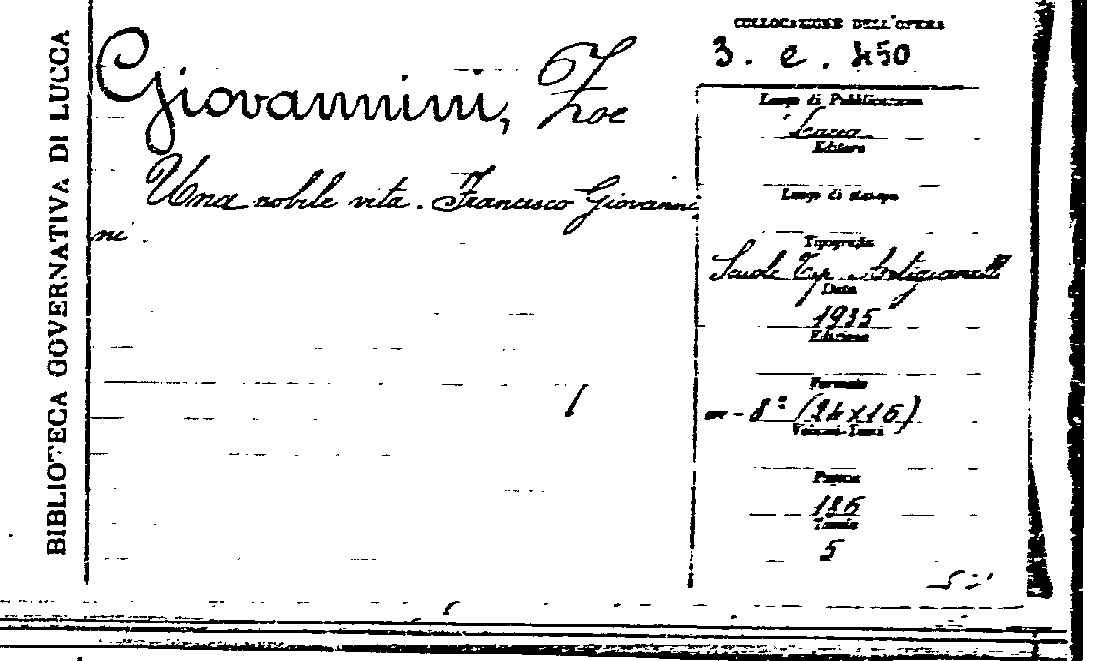 BIBLIOTECA GOVERNATIVA DI LUCCA
Giovannini, Zoe
Una nobile vita. Francesco Giovanni
ni.
COLLOCAZIONE DELL'OPERA
3. e. 450
Luogo di Pubblicazione
Editore
Luogo di stampa
Tipografia
Scuole Tip. Artigianelli
Data
1935
Edizione
Formato
in-8° (24x16)
Volumi-Tomi
Pagine
186
Tavole
5